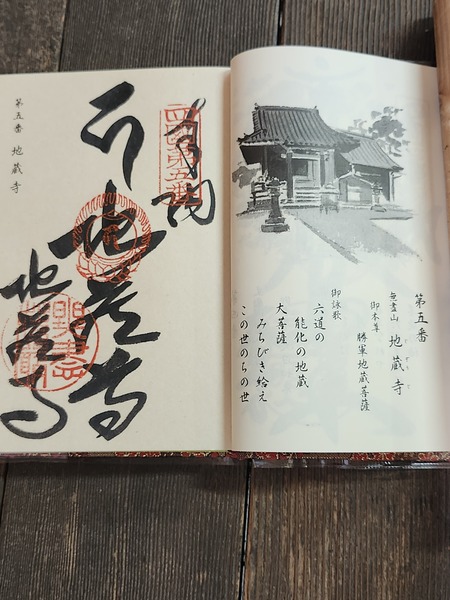 第五番
無盡山 地蔵寺
御本尊
勝軍地蔵菩薩
御詠歌
六道の
能化の地蔵
大菩薩
みちびき給え
この世のちの世
奉納
四国第五番
地蔵寺
第五番 地蔵寺